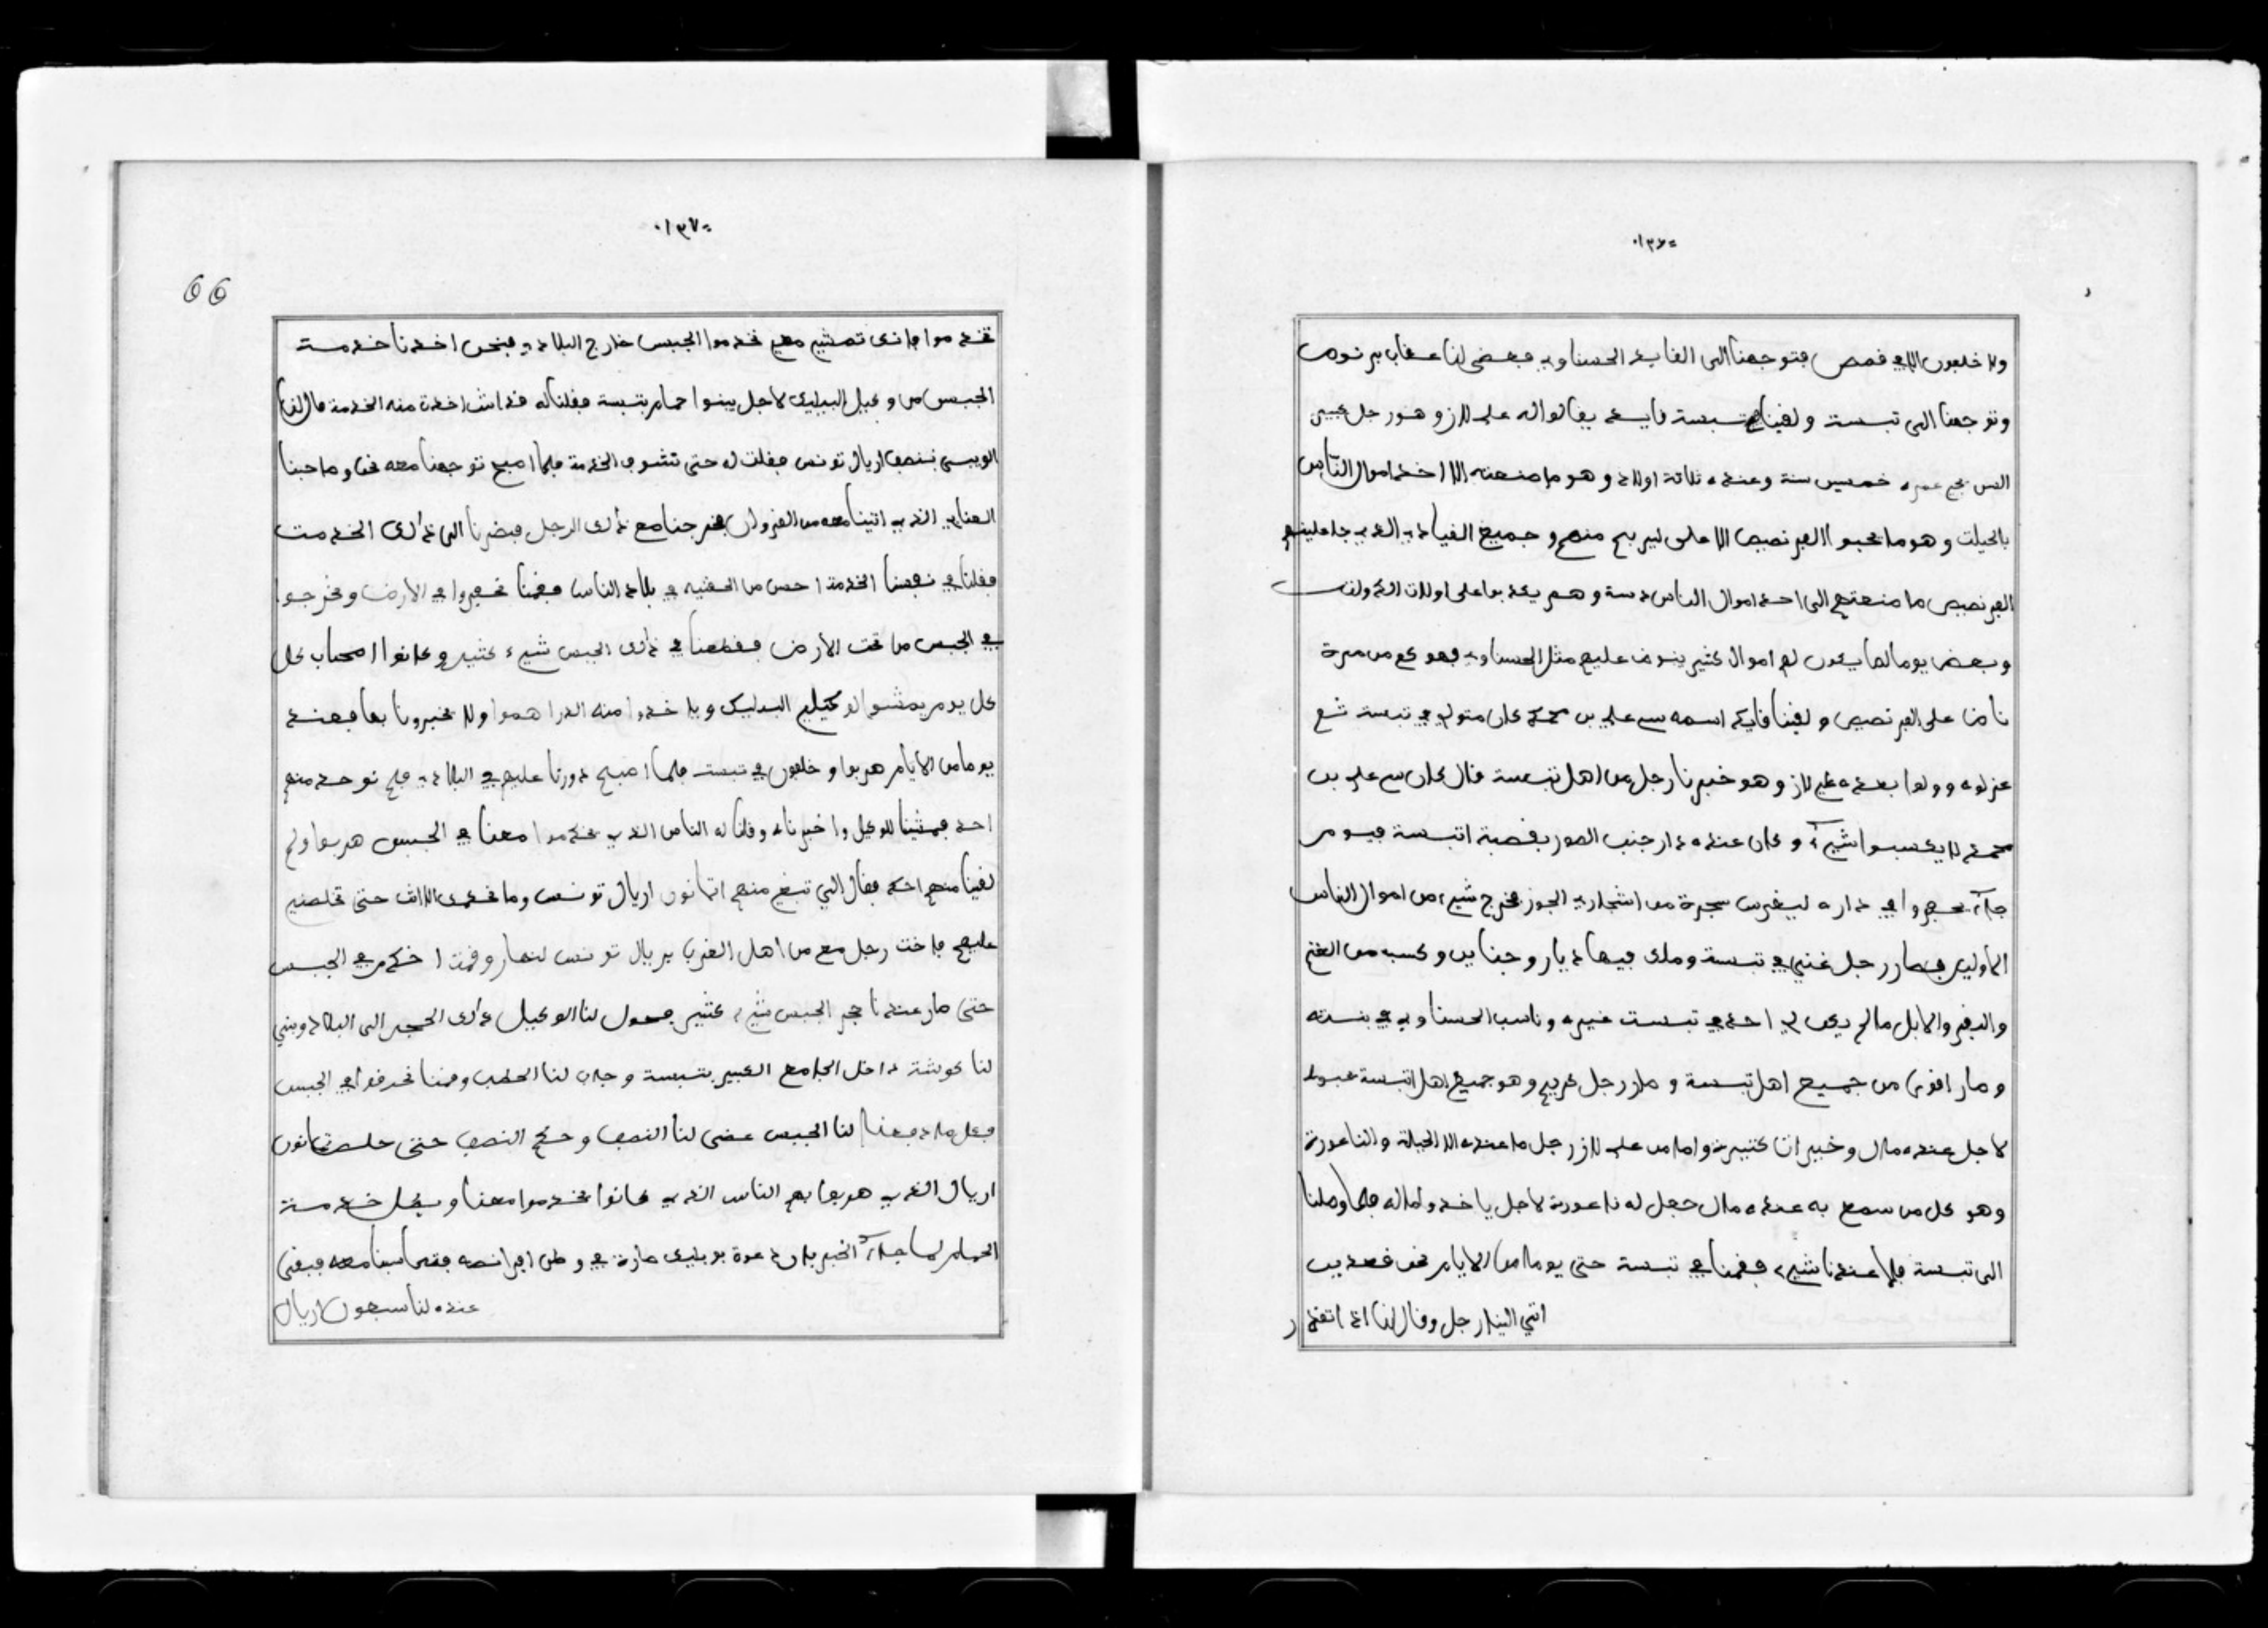 ٠١٣٦٠
ولا خليون الا في قمص فتوجهنا الى القايد الحسناوي فعضى لنا
وتوجهنا الى تبسة ولقينا في تبسة قايد يقالوا له علي لاز وهو رجل كبير
السن في عمره خمسين سنة وعنده ثلاثة اولاد وهو ما صنعته الا اخد اموال الناس
بالحيلت وهو ما يحبوا الفرنصيص الا على ليربح منهم وجميع القياد الذي جا عليهم
الفرنصيص ما صنعتهم الى اخد اموال الناس وهم يكدبوا على
وبعض يوما لها يكون لهم اموال كثير ينوض عليهم مثل الحسناوي فهو كم من مرة
ناض على الفرنصيص ولقينا قايد اسمه سي علي بن محمد كان متولي في تبسة ثم
عزلوه وولوا بعده علي لاز وهو خبرنا رجل من اهل تبسة قال كان سي علي بن
محمد لا يكسبوا شيء وكان عنده دار جنب الصور بقصبة اتبسة فيوم
جاء يحفروا في داره ليغرس سجرة من اشجار الجوز فخرج شيء من اموال الناس
الاولين فصار رجل غني في تبسة وملك فيها ديار وجناين وكسب من الغنم
والبقر والابل ما لم يكن لي احد في تبست غيره وناسب الحسناوي في بنته
وصار اقوى من جميع اهل تبسة وصار رجل كريم وهو جميع اهل اتبسة
لاجل عنده مال وخيرات كثيرة واما سي علي لاز رجل ما عنده الا الحيلة والناعورة
وهو كل من سمع به عنده مال جعل له ناعورة لاجل ياخدوا ماله فلما وصلنا
الى تبسة فلا عندنا شيء فقمنا في تبسة حتى يوما من الايام نحن قعدين
اتى الينا رجل وقال لنا اذا
٠١٣٧٠
66
تخدموا فانك تمشي معي تخدموا الجبس خارج البلاد فنحن اخدنا خدمت
الجبس من وكيل البيليك لاجل يبنوا حمام بتبسة فقلنا له قداش اخدت منه الخدمة قال لنا
بنصف اريال تونس فقلت له حتى نشوف الخدمة فلما اصبح توجهنا معه نحن وصاحبنا
الذي اتينا معه من القروان فخرجنا مع ذلك الرجل فبضرنا الى ذلك الخدمت
فقلنا في نفسنا الخدمة احسن من في بلاد الناس فقمنا نحفروا في الارض ونخرجوا
في الجبس من تحت الارض فقطعنا في ذلك الجبس شيء كثير وكانوا اصحاب كل
كل يوم يمشوا لوكيل البيليك وياخدوا منه الدراهموا ولا يخبرونا بها فعند
يوما من الايام هربوا وخلون في تبست فلما اصبح دورنا عليهم في البلاد فلم نوجد منهم
احد فمشينا للوكيل واخبرناه وقلنا له الناس الذي يخدموا معنا في الجبس هربوا ولم
لقينا منهم احد فقال الي تبقى منهم اثمانون اريال تونس وما نعرف الا انت حتى تخلصني
عليهم فاخت رجل معي من اهل الغرب بريال تونس لنهار وقمت اخدم في الجبس
حتى صار عندنا حجر الجبس شيء كثير فحول لنا الوكيل ذلك الحجر الى البلاد وبنى
لنا كوشة داخل الجامع الكبير بتبسة وجاب لنا الحطب وقمنا نحرقوا في الجبس
فكل ما دفعنا لنا الجبس عضى لنا النصف وحكم النصف حتى خلصت ثمانون
اريال الذي هربوا بهم الناس الذي كانوا يخدموا معنا وبطل خدمت
الحمام لما جاء الخبر بان دعوة بوبليك صارت في وطن افرانصه فتحاسبنا معه فبقى
عنده لنا سبعون اريال